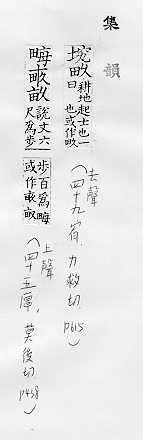 集韻
耕地起土也一
曰也或作畝
(去聲
四十九宥 力救切 p615)
畮畞畝 說文六
尺爲步
步百爲畮
或作畞畝
(上聲
四十五厚, 莫後切 p438)